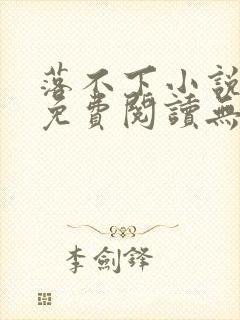 落不下小說
免費閱讀無
李劍鋒